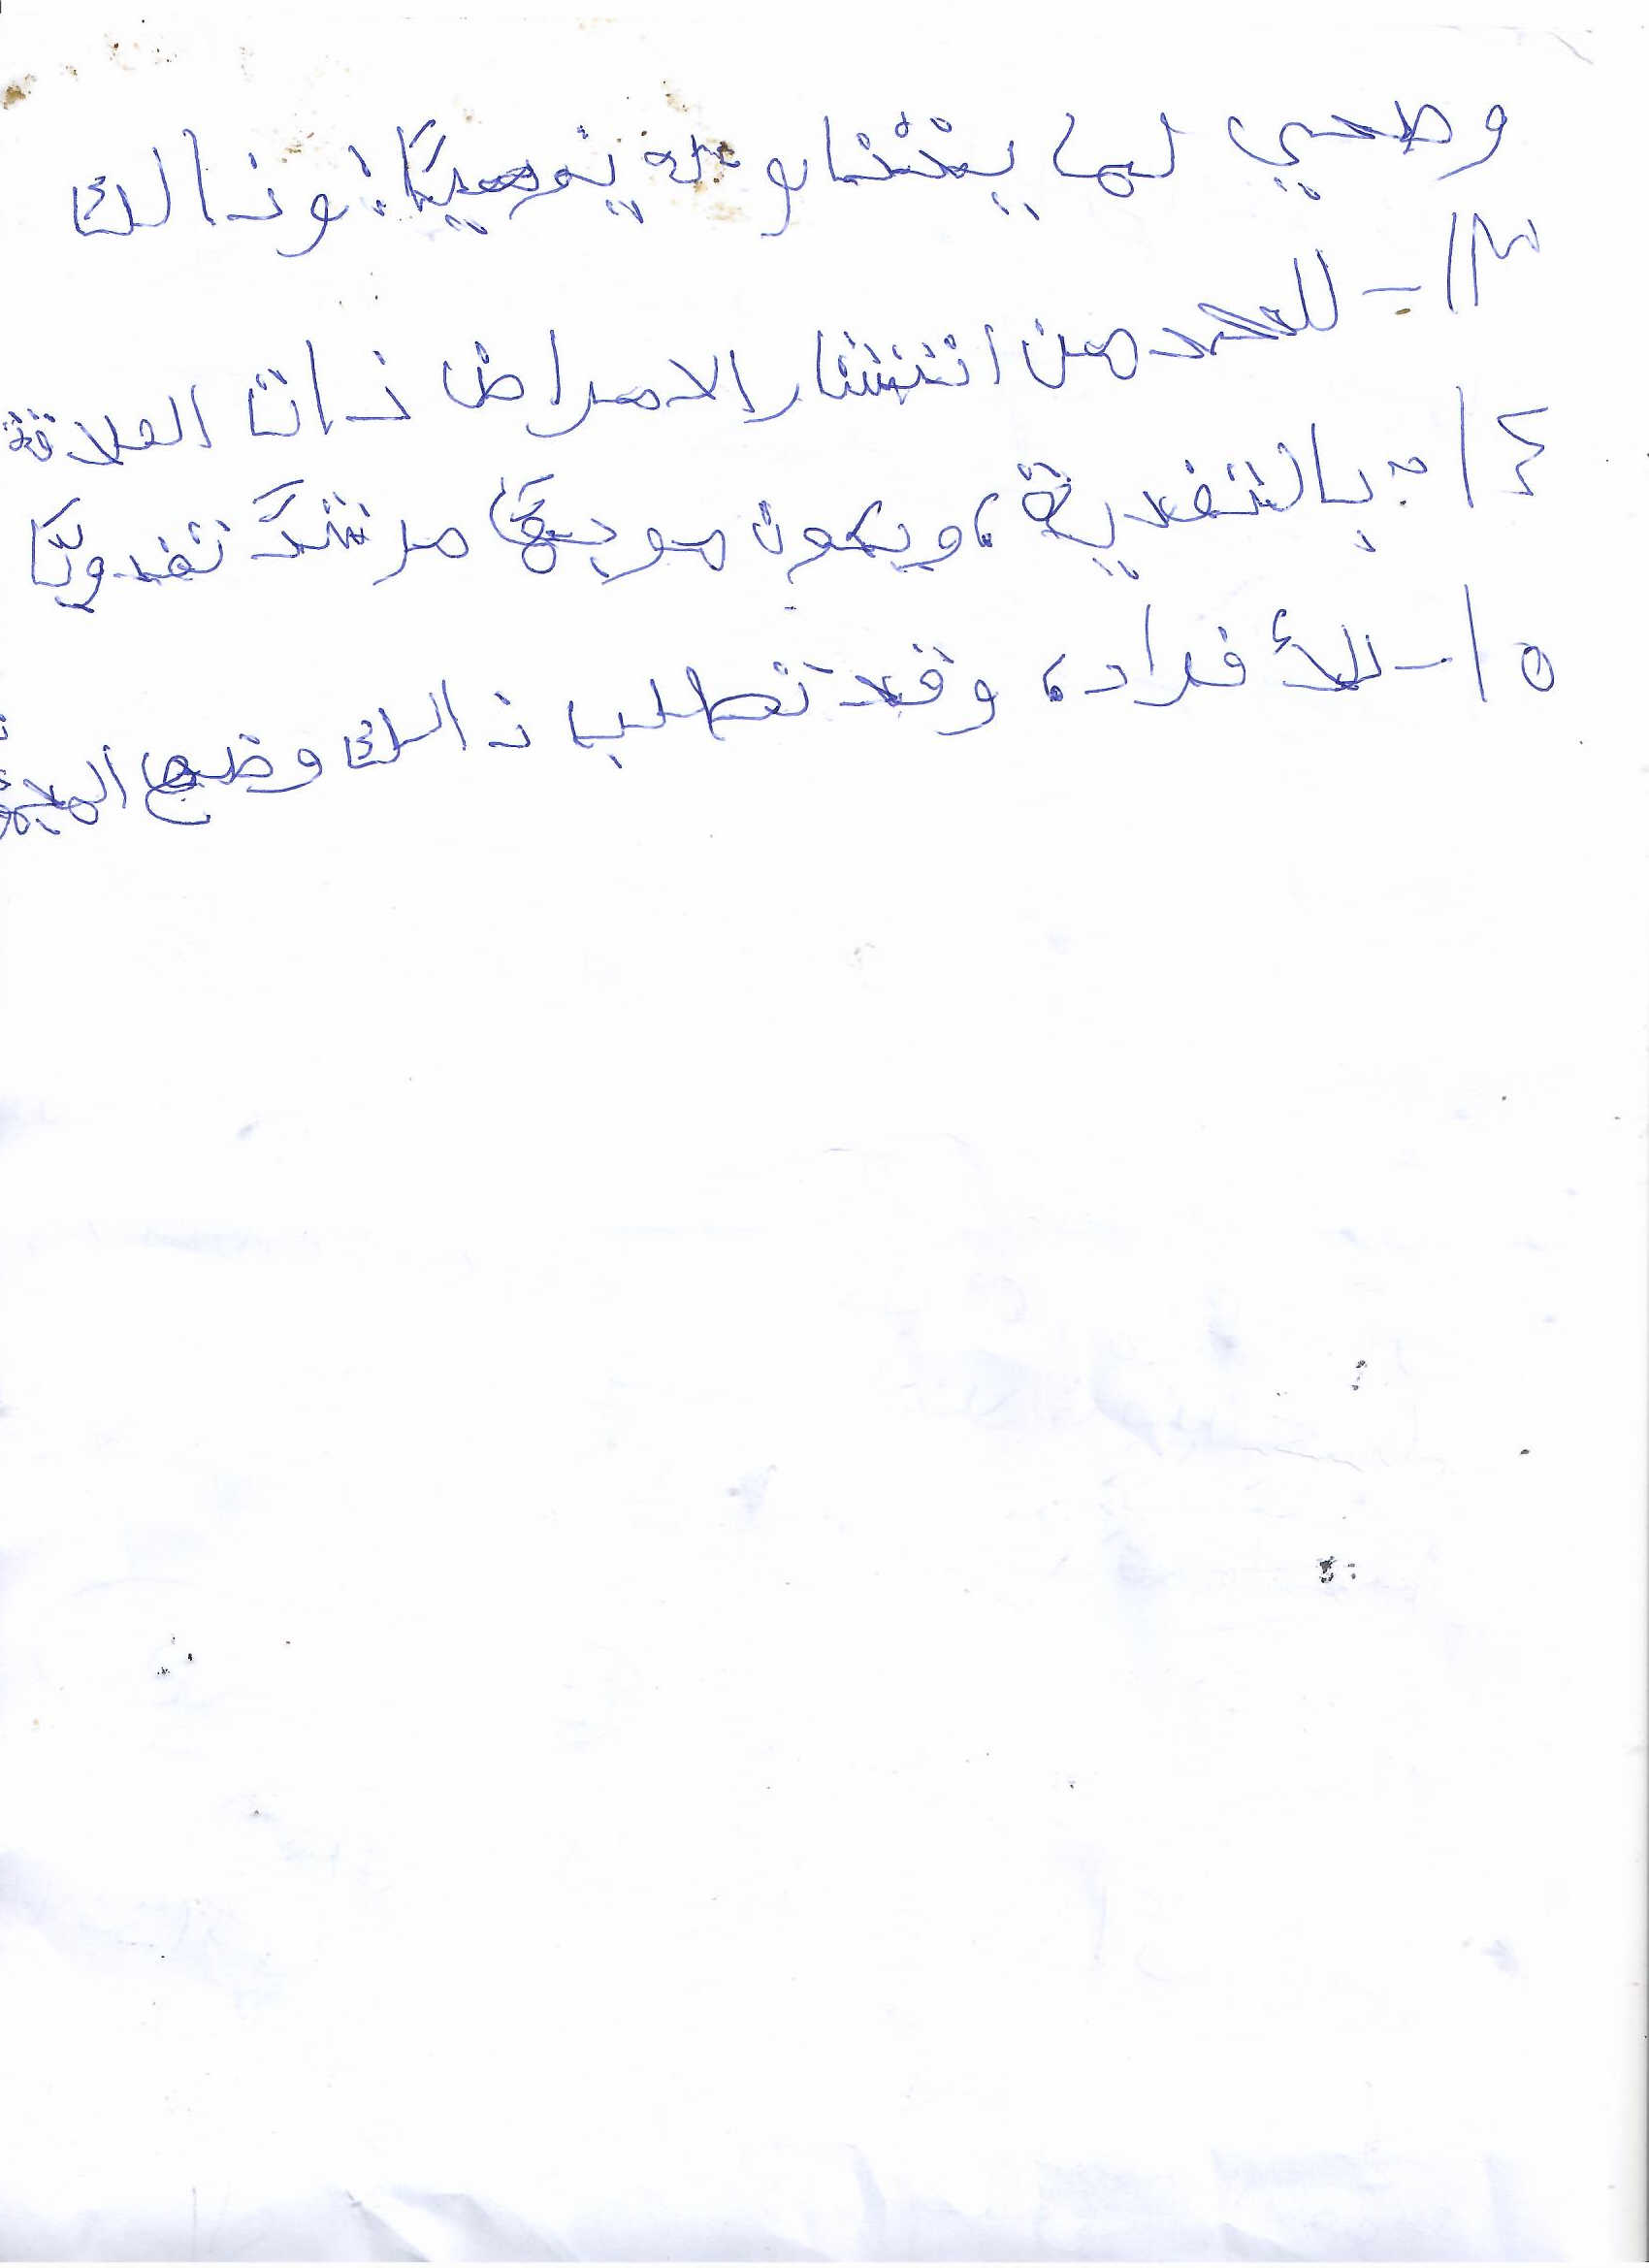 وصحي لما يتناوله يوميًا: وذالك
١٣- للحد من انتشار الامراض ذات العلاقة
١٤- بالتغدية، ويكون موجهًا مرشدَّ تغدويًّا
١٥- للأفراد، وقد تطلب ذالك وضع